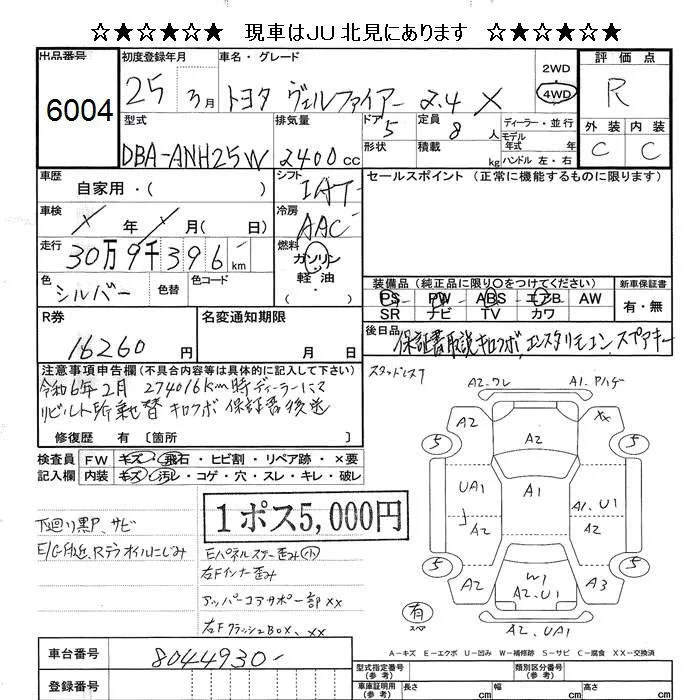 ☆★☆★☆★ 現車はJU北見にあります ☆★☆★☆★
出品番号
6004
初度登録年月
25 3月
車名・グレード
トヨタ ヴェルファイアー 2.4 X
2WD
4WD
評価点
R
型式
DBA-ANH25W
排気量
2400cc
ドア
5
形状
定員
8人
積載
kg
ディーラー・並行
モデル年式 年
ハンドル 左・右
外装
C
内装
C
車歴
自家用・( )
シフト
IAT
セールスポイント (正常に機能するものに限ります)
車検
年 月( 日)
冷房
AAC
走行
30万9千396km
燃料
ガソリン
軽・油
色
シルバー
色替
色コード
装備品(純正品に限り○をつけてください)
PS PW ABS エアB AW
SR ナビ TV カワ
新車保証書
有・無
R券
16260円
名変通知期限
月 日
後日品
保証書取説キロクボ、エンスタリモコン、スペアキー
スタッドレス7
注意事項申告欄(不具合内容等は具体的に記入して下さい)
令和6年2月 274016km時ディーラーにて
リビルト所乗せ替 キロクボ 保証書後送
修復歴 有〔箇所 〕
検査員
記入欄
FW キズ・飛石・ヒビ割・リペア跡・×要
内装 キズ・汚レ・コゲ・穴・スレ・キレ・破レ
1ポス5,000円
下廻り黒P、サビ
E/G付近、Rデフオイルにじみ
Eパネルステー歪み小
右Fインナー歪み
アッパーコアサポー部XX
右FフラッシュBOX、XX
A2.ワレ
A1.Pハゲ
A2
XX
5
A2
5
UA1
A1
A1.U1
5
A2
W1
A2.U1
A3
5
A2.UA1
有
スペア
A-キズ E-エクボ U-凹み W-補修跡 S-サビ C-腐食 XX-交換済
車台番号
8044930
登録番号
型式指定番号
(参考)
類別区分番号
(参考)
車庫証明用
(参考)
長さ cm
幅 cm
高さ cm